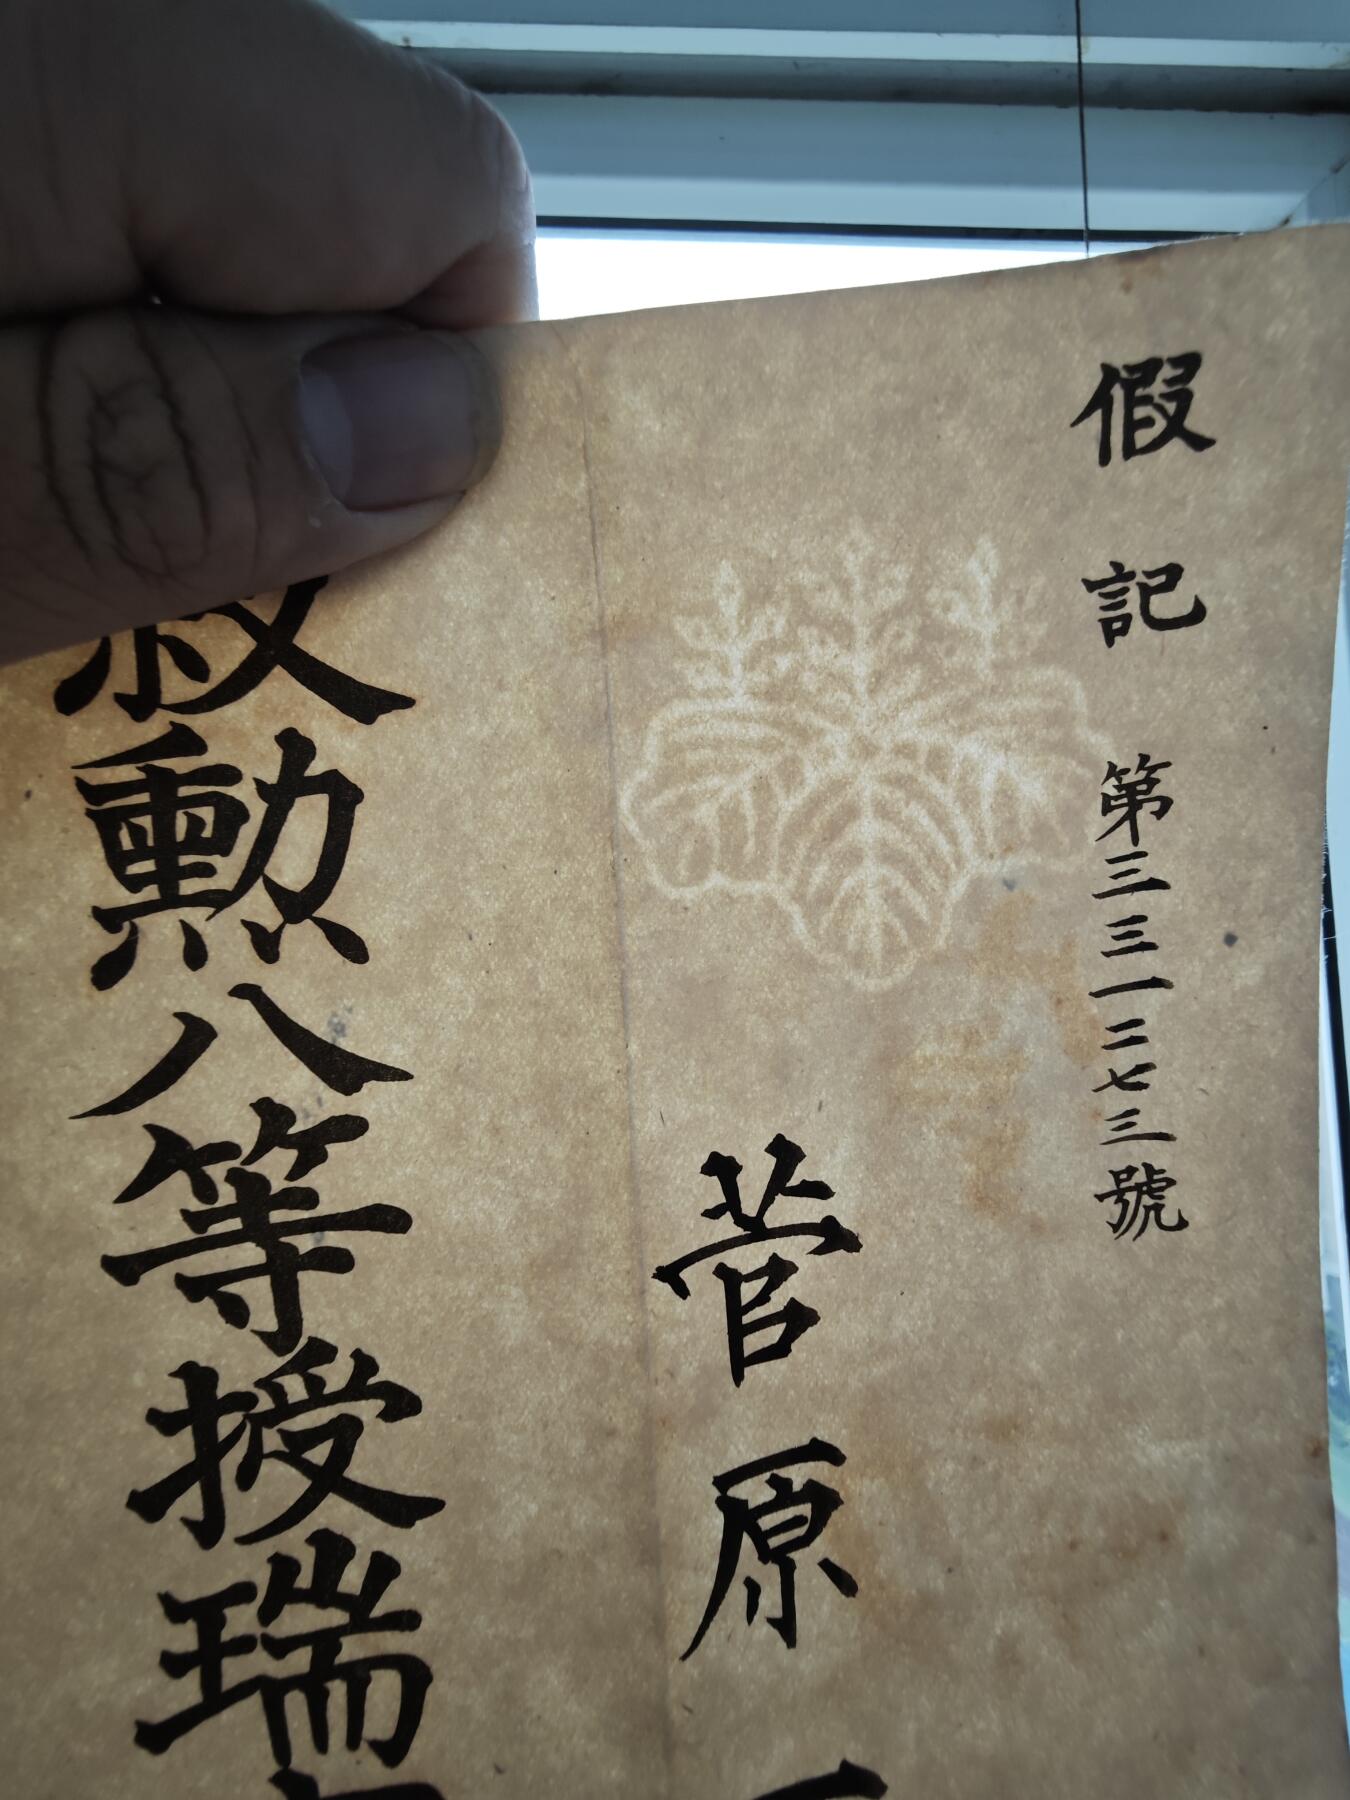 假記第三三一二七三號
菅原
叙勲八等授瑞